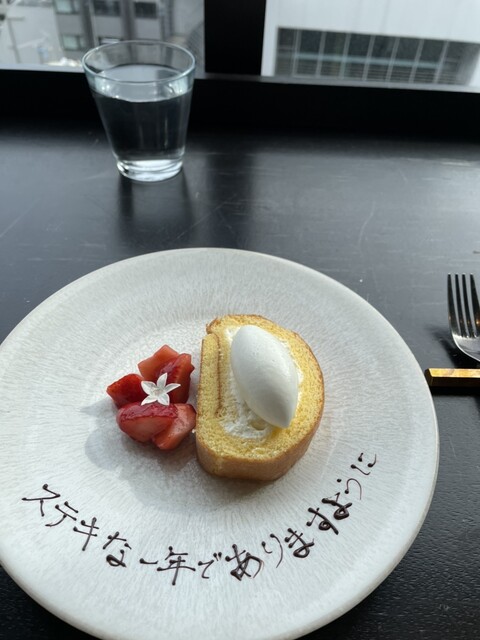 ステキな一年でありますように